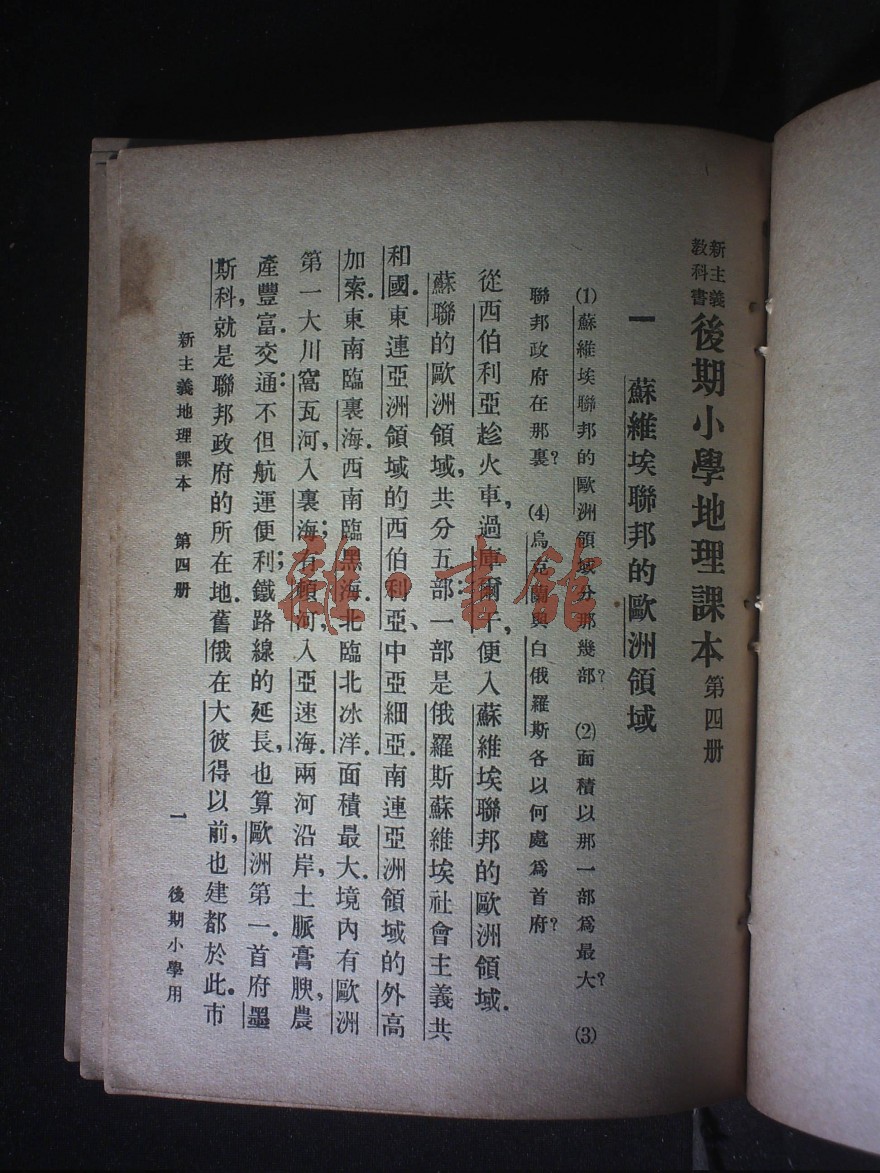 新主義
教科書
後期小學地理課本 第四册
一 蘇維埃聯邦的歐洲領域
(1)蘇維埃聯邦的歐洲領域分那幾部？ (2)面積以那一部爲最大？ (3)
聯邦政府在那裏？ (4)烏克蘭與白俄羅斯各以何處爲首府？
從西伯利亞趁火車，過庫爾干，便入蘇維埃聯邦的歐洲領域．
蘇聯的歐洲領域，共分五部：一部是俄羅斯蘇維埃社會主義共
和國．東連亞洲領域的西伯利亞、中亞細亞．南連亞洲領域的外高
加索．東南臨裏海．西南臨黑海．北臨北冰洋．面積最大．境內有歐洲
第一大川窩瓦河，入裏海；有頓河，入亞速海．兩河沿岸，土脈膏腴，農
產豐富．交通：不但航運便利；鐵路線的延長，也算歐洲第一．首府墨
斯科，就是聯邦政府的所在地．舊俄在大彼得以前，也建都於此．市
新主義地理課本 第四册 一 後期小學用
雜·書館